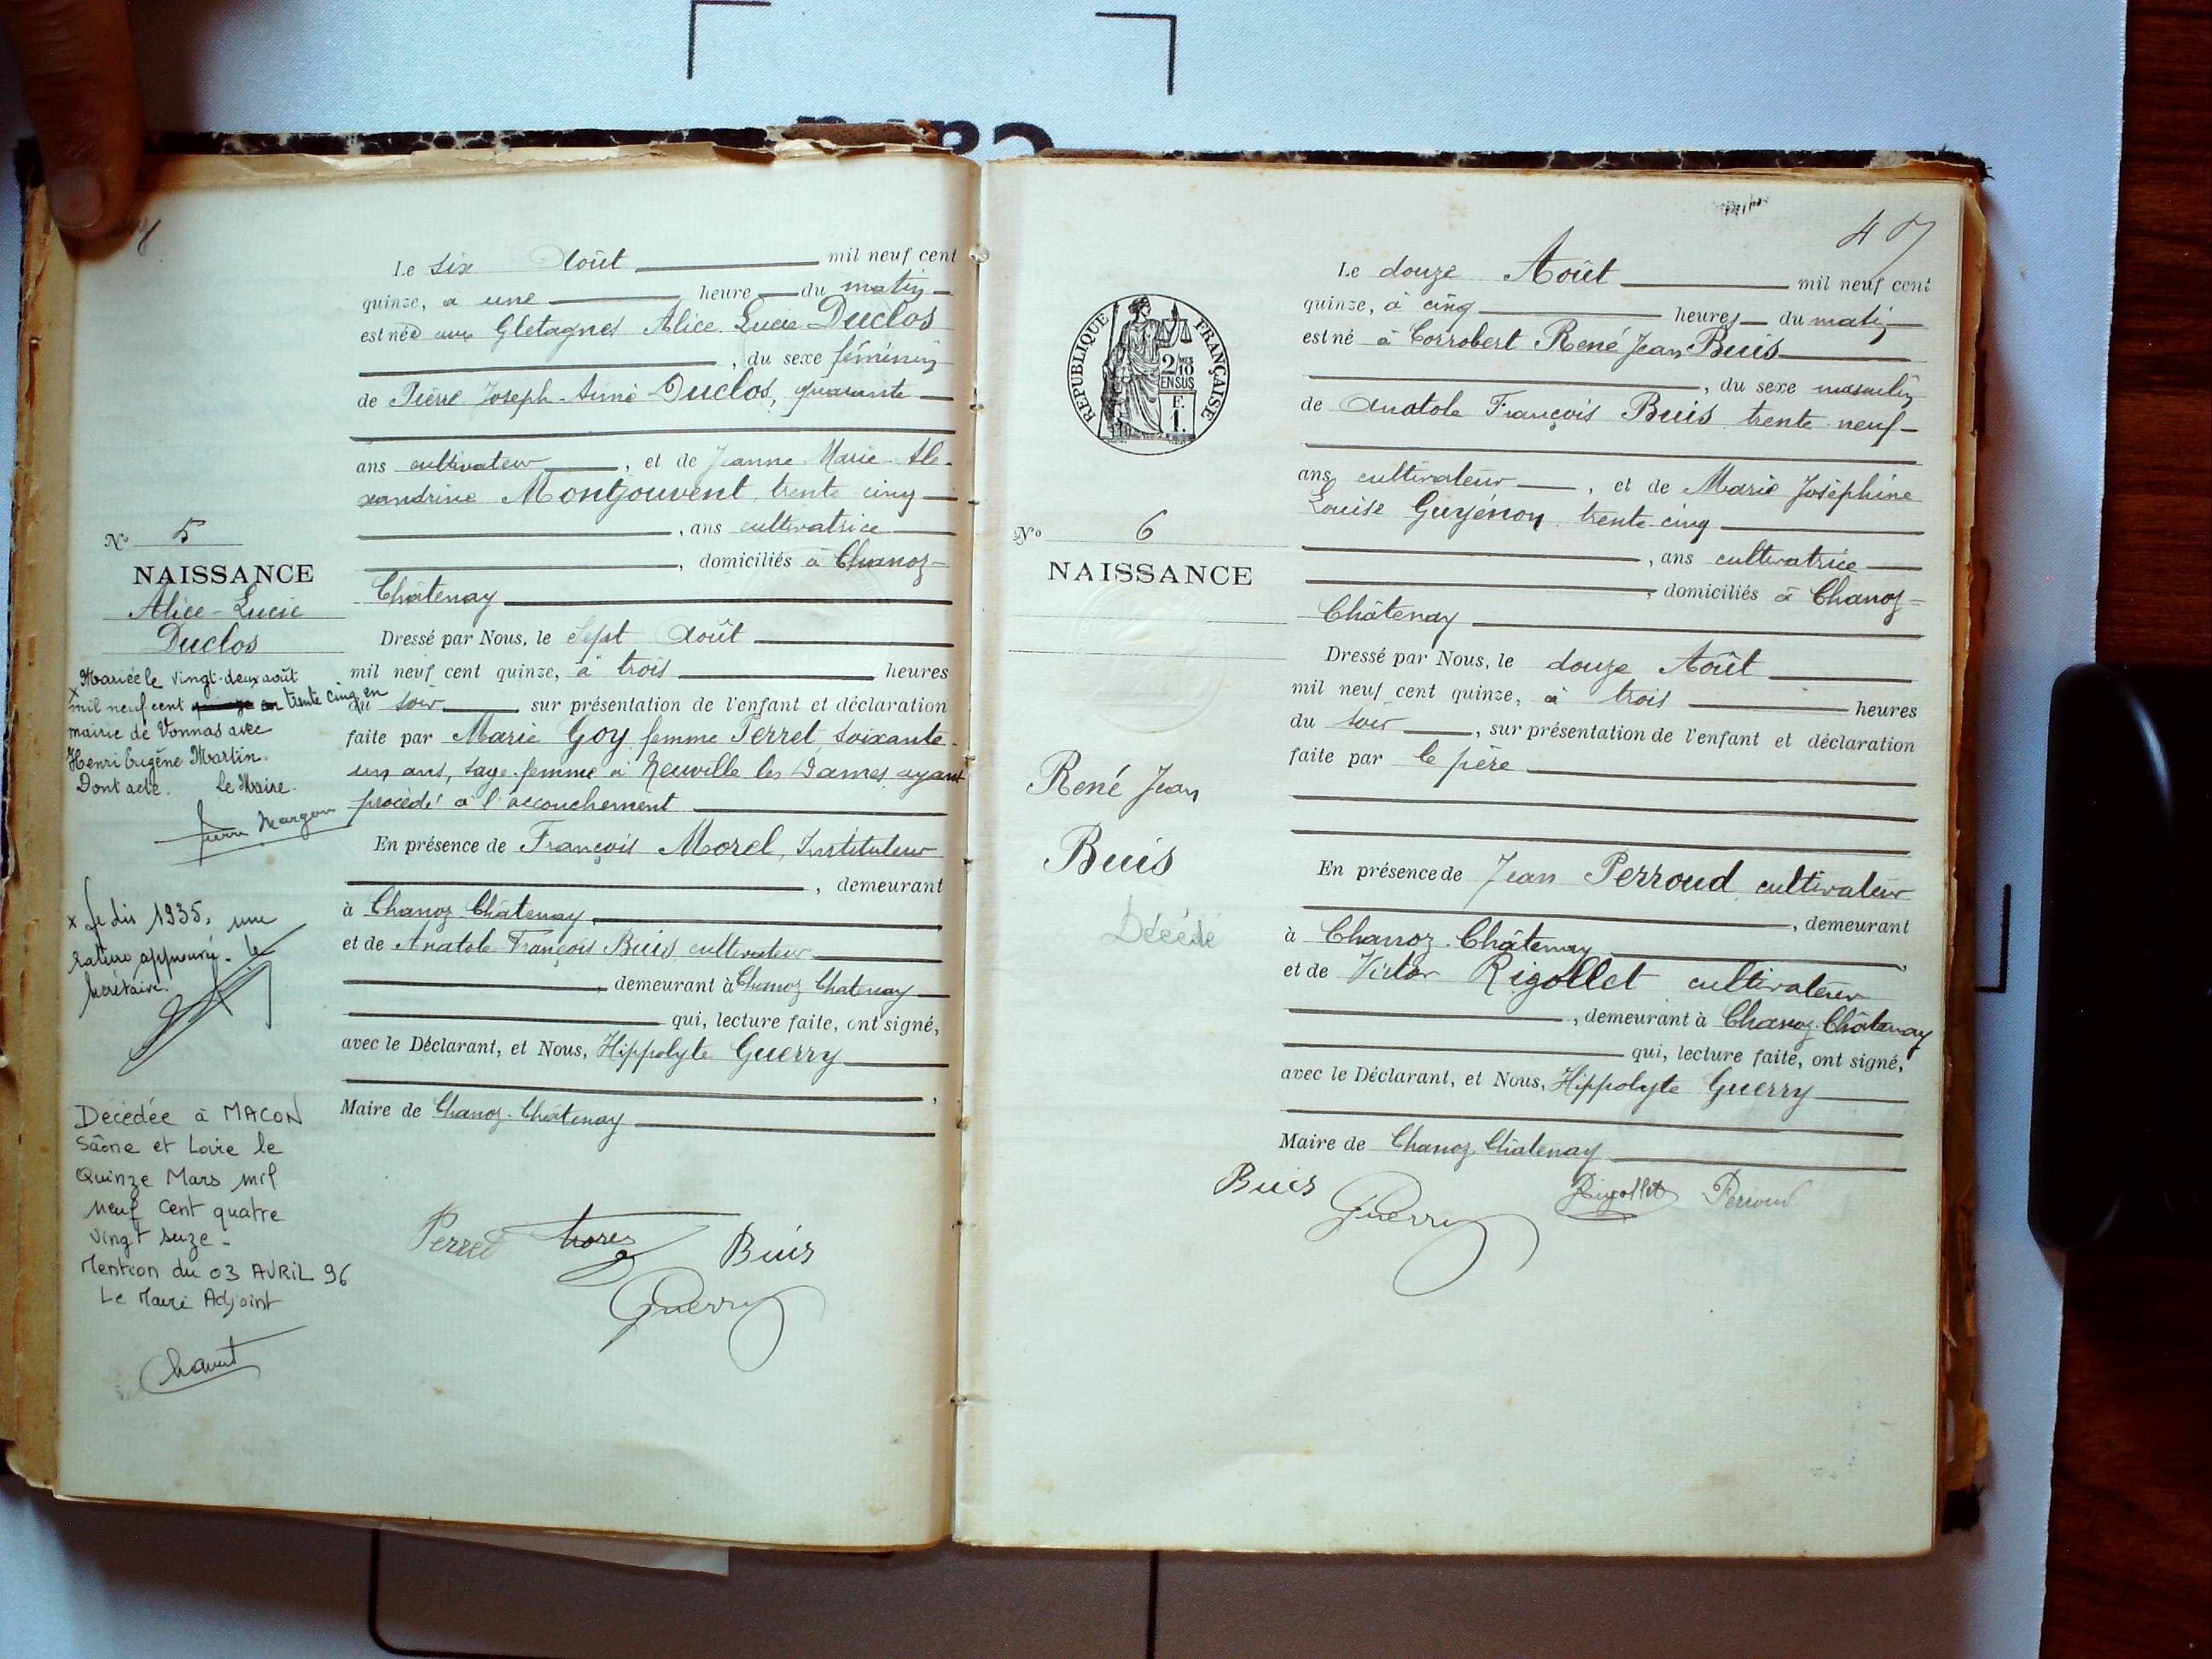 Le six Août mil neuf cent
quinze, à une heure du matin
est née aux Gletagnes Alice Lucie Duclos
, du sexe féminin
de Pierre Joseph-Aimé Duclos, quarante
ans cultivateur, et de Jeanne Marie Ale-
xandrine Montjouvent, trente cinq
, ans cultivatrice
, domiciliés à Chanoz-
Châtenay
Dressé par Nous, le sept Août
mil neuf cent quinze, à trois heures
du soir sur présentation de l'enfant et déclaration
faite par Marie Goy femme Perret, soixante-
un ans, sage-femme à Neuville les Dames, ayant
procédé à l'accouchement
En présence de François Morel, Instituteur
, demeurant
à Chanoz-Châtenay,
et de Anatole François Buis, cultivateur
, demeurant à Chanoz Chatenay
qui, lecture faite, ont signé,
avec le Déclarant, et Nous, Hippolyte Guerry
,
Maire de Chanoz-Châtenay
Perret Morel Buis
Guerry
N° 5
NAISSANCE
Alice-Lucie
Duclos
Mariée le vingt-deux août
x mil neuf cent trente cinq en
mairie de Vonnas avec
Henri Eugène Martin.
Dont acte. Le Maire.
x Je dis 1935, une
rature approuvée. Le
Secrétaire.
Décédée à MACON
Saône et Loire le
Quinze Mars mil
neuf cent quatre
vingt seize -
Mention du 03 AVRIL 96
Le Maire Adjoint
47
RÉPUBLIQUE FRANÇAISE
2/10
EN SUS
F.
1.
N° 6
NAISSANCE
René Jean
Buis
Décédé
Le douze Août mil neuf cent
quinze, à cinq heures du matin
est né à Corrobert René Jean Buis
, du sexe masculin
de Anatole François Buis, trente neuf
ans, cultivateur, et de Marie Joséphine
Louise Guyénon, trente cinq
, ans cultivatrice
, domiciliés à Chanoz-
Châtenay
Dressé par Nous, le douze Août
mil neuf cent quinze, à trois heures
du soir, sur présentation de l'enfant et déclaration
faite par le père
En présence de Jean Perroud, cultivateur
, demeurant
à Chanoz-Châtenay,
et de Victor Rigollet cultivateur
, demeurant à Chanoz-Châtenay
qui, lecture faite, ont signé,
avec le Déclarant, et Nous, Hippolyte Guerry
Maire de Chanoz Châtenay
Buis Guerry Rigollet Perroud